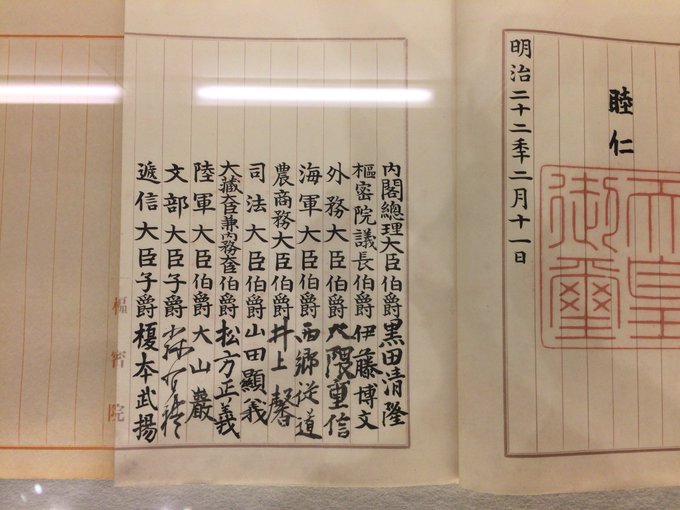 睦仁
天皇
御璽
明治二十二秊二月十一日
內閣總理大臣伯爵黒田清隆
樞密院議長伯爵伊藤博文
外務大臣伯爵大隈重信
海軍大臣伯爵西郷従道
農商務大臣伯爵井上馨
司法大臣伯爵山田顯義
大藏大臣兼內務大臣伯爵松方正義
陸軍大臣伯爵大山巖
文部大臣子爵森有禮
遞信大臣子爵榎本武揚
樞密院